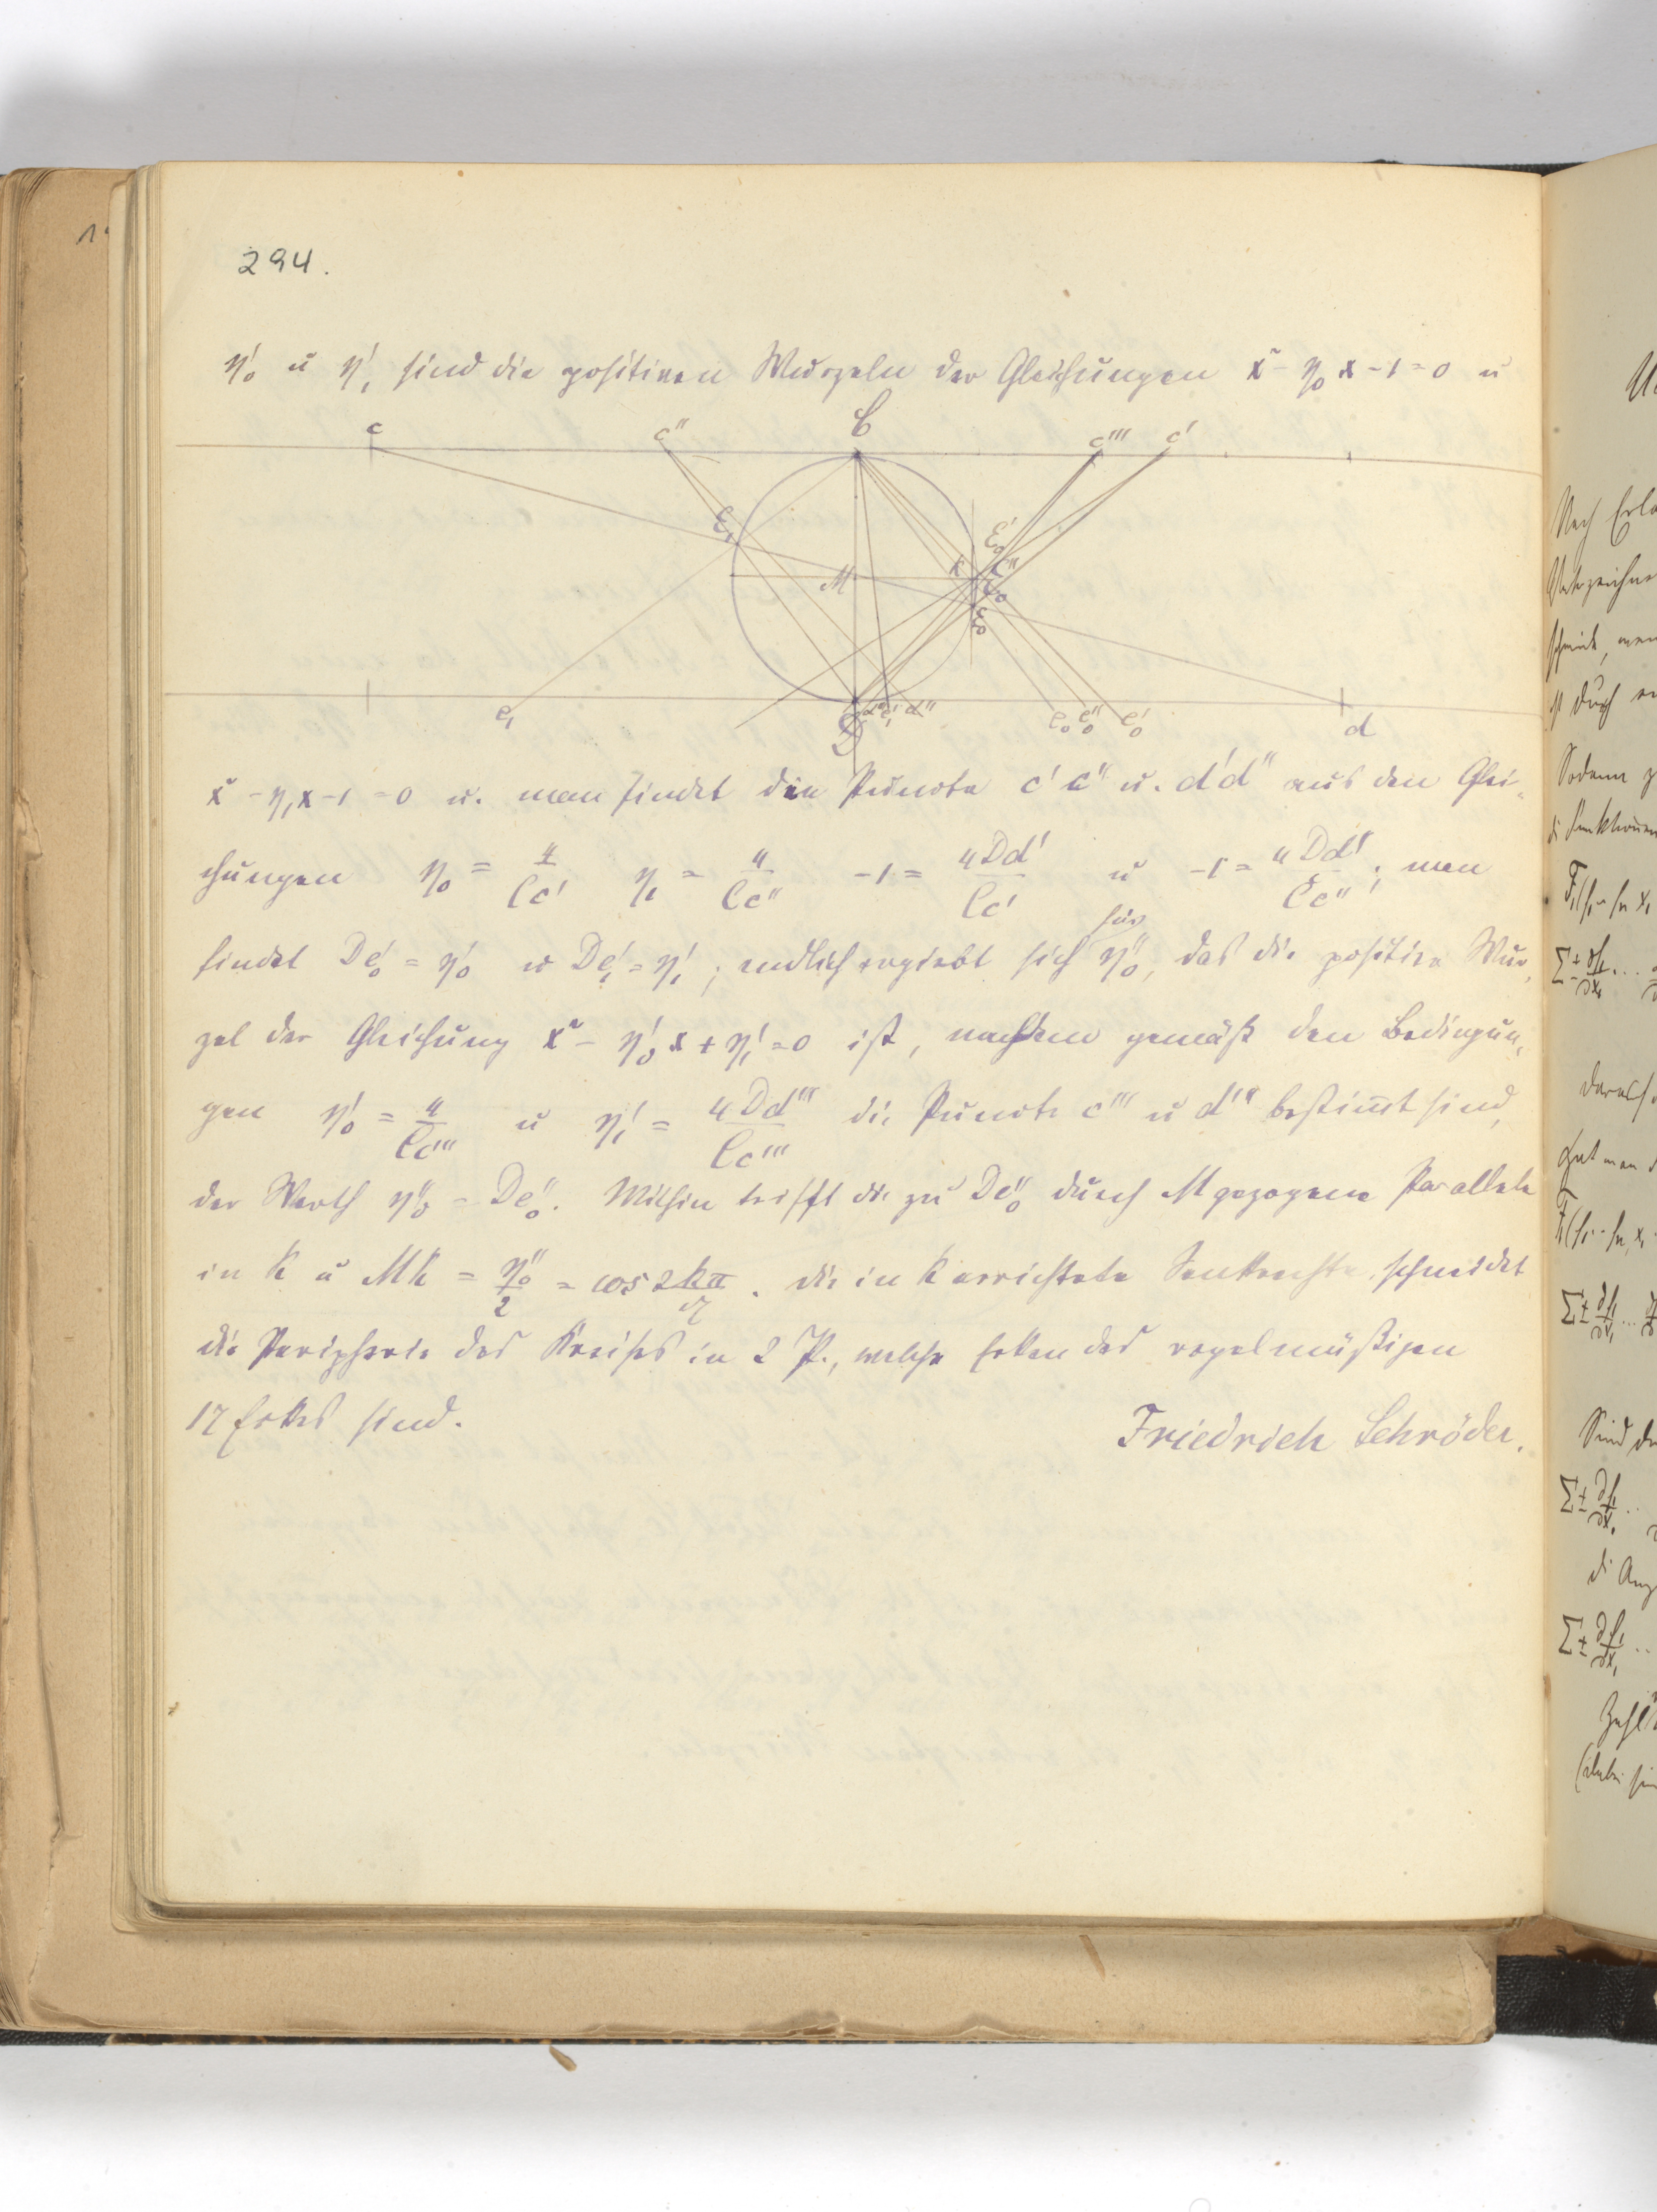 294.
η'₀ u η'₁ sind die positiven Wurzeln der Gleichungen x² - η₀x - 1 = 0 u
c c'' C c''' c'
E₁ E'₀ M K E''₀ E₀
e₁ D d''' e'₁ d'' e₀ e''₀ e'₀ d
x² - η₁x - 1 = 0 u. man findet die Puncte c' c'' u. d' d'' aus den Glei-
chungen η₀ = 4/Cc' η₁ = 4/Cc'' -1 = 4Dd'/Cc' u -1 = 4Dd''/Cc''; man
findet De'₀ = η'₀ u De'₁ = η'₁; endlich ergiebt sich für η''₀, das die positive Wur-
zel der Gleichung x² - η'₀x + η'₁ = 0 ist, nachdem gemäß den Bedingun-
gen η'₀ = 4/Cc''' u η'₁ = 4Dd'''/Cc''' die Puncte c''' u d''' bestimt sind,
der Werth η''₀ = De''₀. Mithin trifft die zu De''₀ durch M gezogene Parallele
in K u MK = η''₀/2 = cos 2kπ/17. die in K errichtete Senkrechte schneidet
die Peripherie des Kreises in 2 P., welche Ecken des regelmäßigen
17 Ecks sind. Friedrich Schröder.
Nach
Sodann
Daraus
Hat man
Sind
Zahl